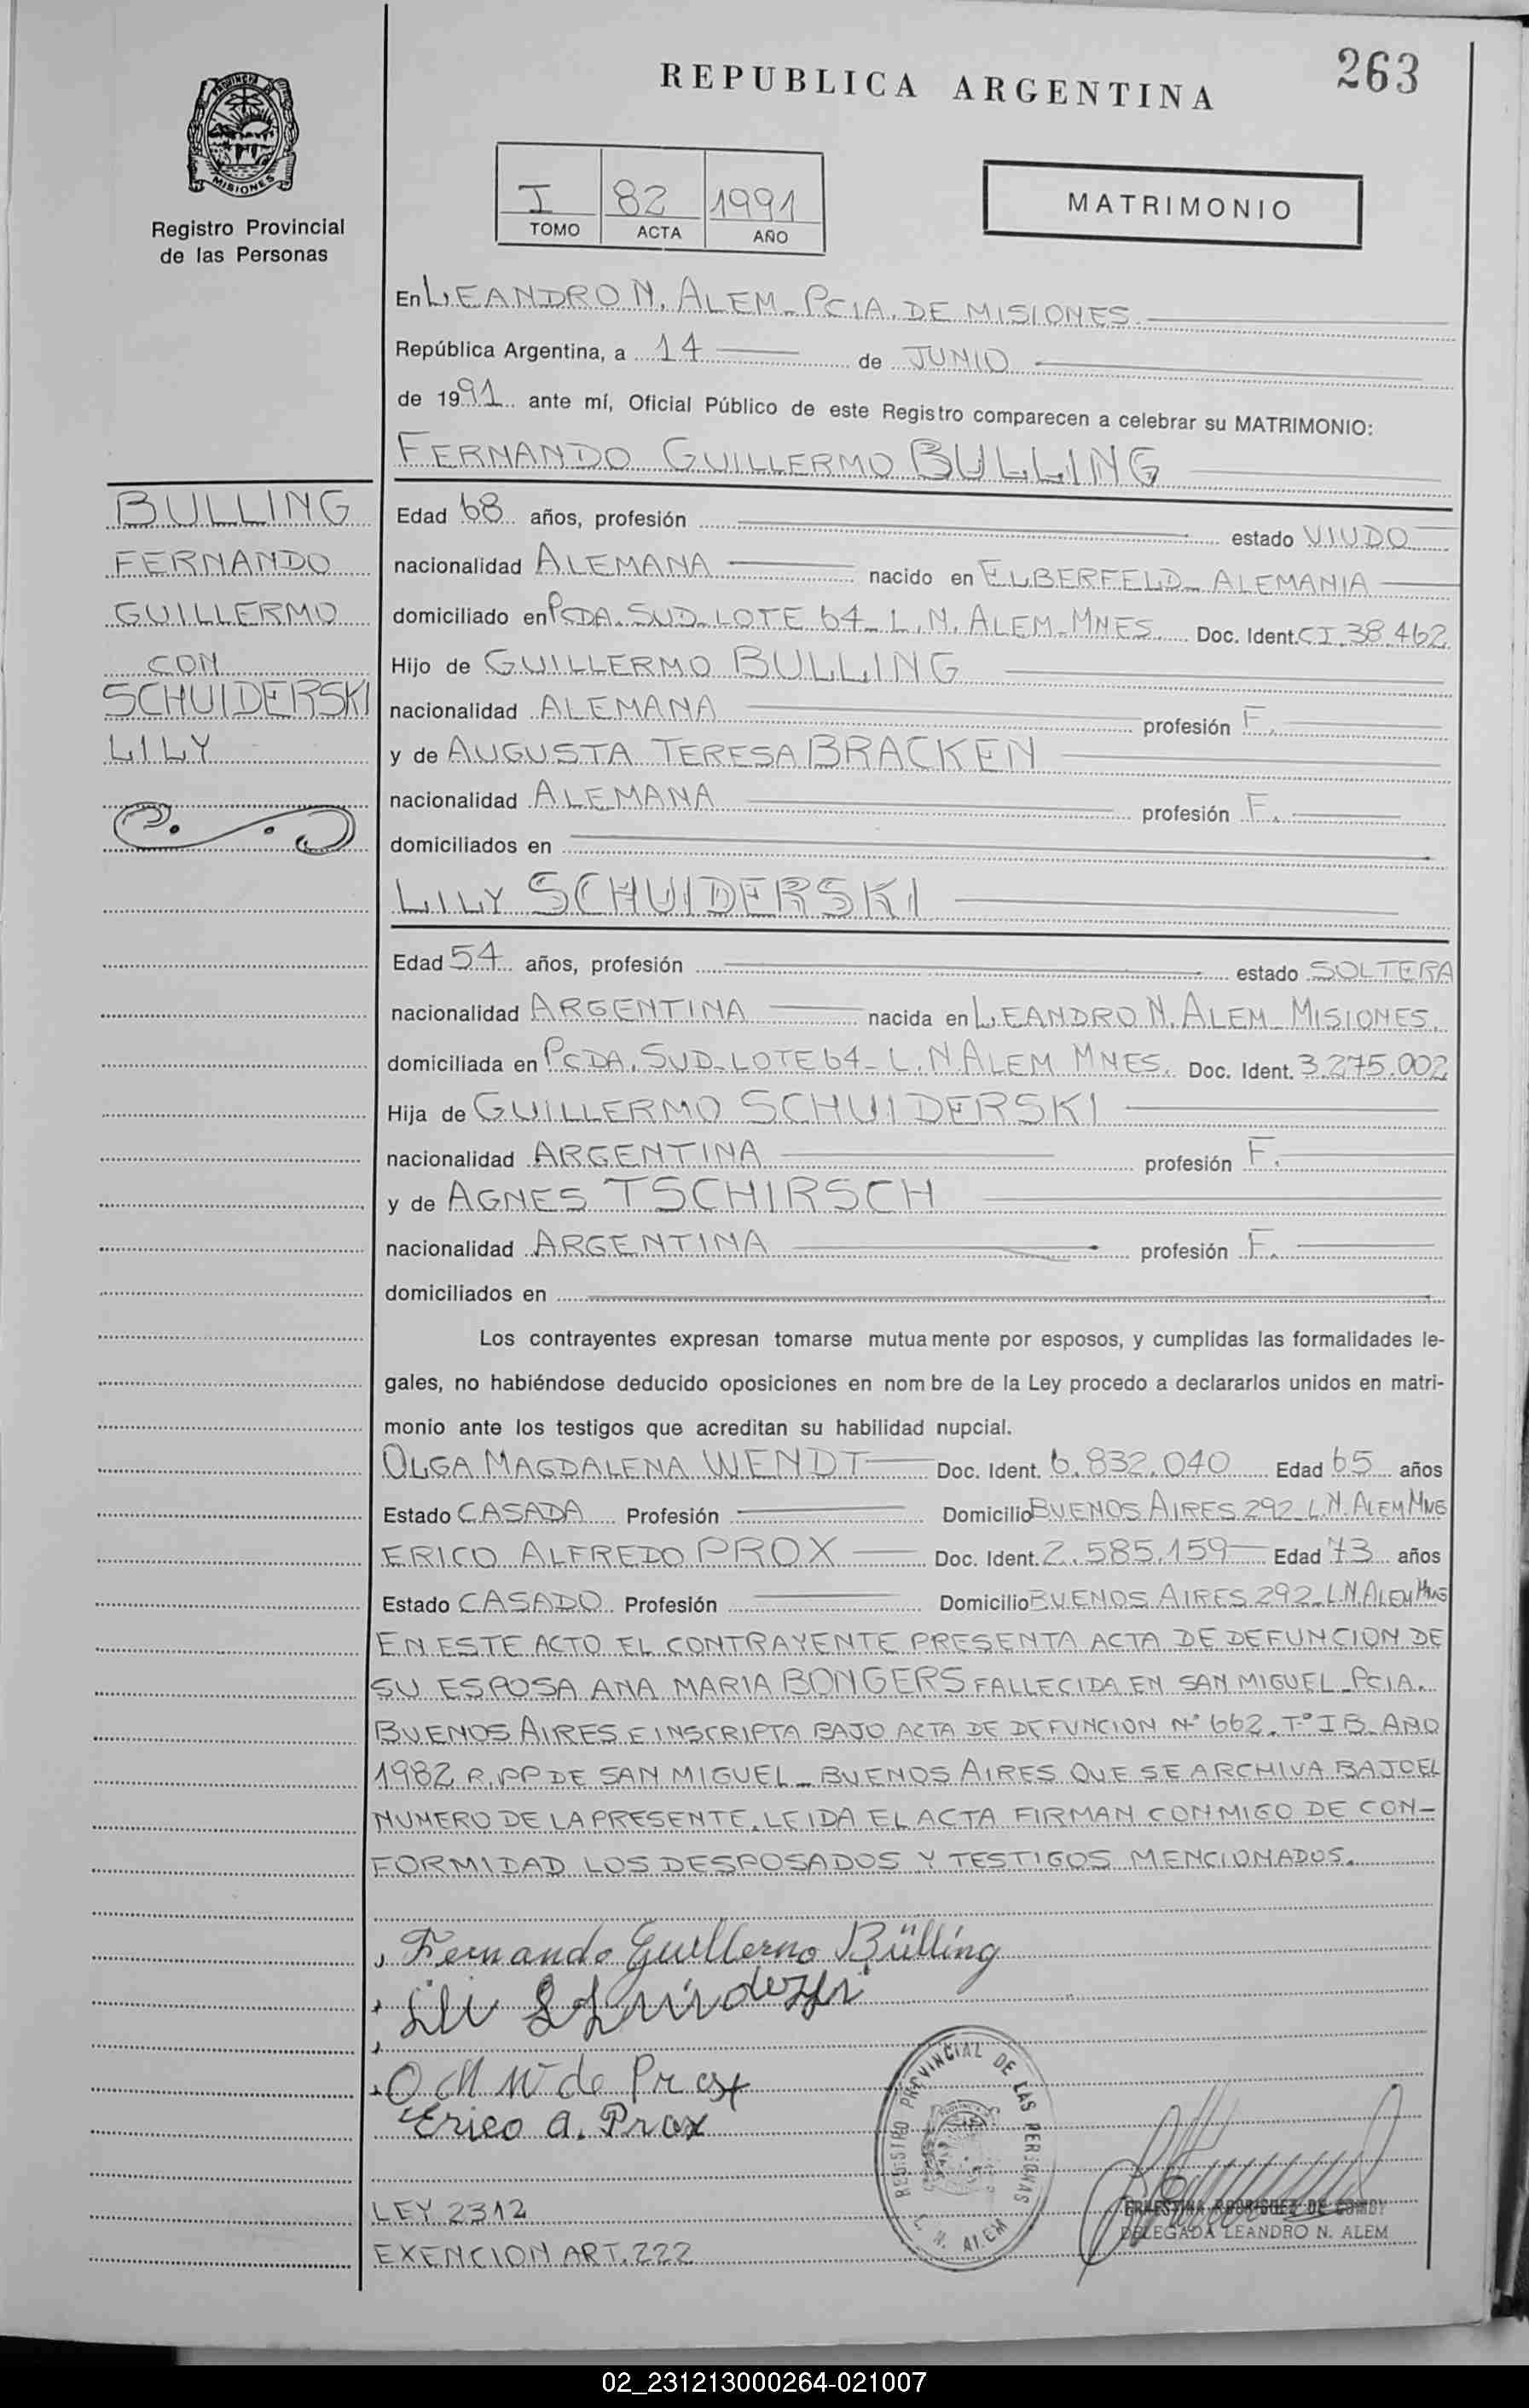 263
REPUBLICA ARGENTINA
PROVINCIA DE
MISIONES
Registro Provincial
de las Personas
I 82 1991
TOMO ACTA AÑO
MATRIMONIO
En LEANDRO N. ALEM - PCIA. DE MISIONES.
República Argentina, a 14 de JUNIO
de 1991 ante mí, Oficial Público de este Registro comparecen a celebrar su MATRIMONIO:
FERNANDO GUILLERMO BULLING
BULLING
FERNANDO
GUILLERMO
CON
SCHUIDERSKI
LILY
Edad 68 años, profesión estado VIUDO
nacionalidad ALEMANA nacido en ELBERFELD - ALEMANIA
domiciliado en PCDA. SUD - LOTE 64 - L. N. ALEM - MNES. Doc. Ident. CI. 38.462
Hijo de GUILLERMO BULLING
nacionalidad ALEMANA profesión F.
y de AUGUSTA TERESA BRACKEN
nacionalidad ALEMANA profesión F.
domiciliados en
LILY SCHUIDERSKI
Edad 54 años, profesión estado SOLTERA
nacionalidad ARGENTINA nacida en LEANDRO N. ALEM - MISIONES.
domiciliada en PCDA. SUD - LOTE 64 - L. N ALEM MNES. Doc. Ident. 3.275.002
Hija de GUILLERMO SCHUIDERSKI
nacionalidad ARGENTINA profesión F.
y de AGNES TSCHIRSCH
nacionalidad ARGENTINA profesión F.
domiciliados en
Los contrayentes expresan tomarse mutuamente por esposos, y cumplidas las formalidades le-
gales, no habiéndose deducido oposiciones en nombre de la Ley procedo a declararlos unidos en matri-
monio ante los testigos que acreditan su habilidad nupcial.
OLGA MAGDALENA WENDT Doc. Ident. 6.832.040 Edad 65 años
Estado CASADA Profesión Domicilio BUENOS AIRES 292 - L. N. ALEM MNES
ERICO ALFREDO PROX Doc. Ident. 2.585.159 Edad 73 años
Estado CASADO Profesión Domicilio BUENOS AIRES 292 - L. N. ALEM MNES
EN ESTE ACTO EL CONTRAYENTE PRESENTA ACTA DE DEFUNCION DE
SU ESPOSA ANA MARIA BONGERS FALLECIDA EN SAN MIGUEL - PCIA.
BUENOS AIRES E INSCRIPTA BAJO ACTA DE DEFUNCION Nº 662. Tº I B - AÑO
1982 R. PP DE SAN MIGUEL - BUENOS AIRES QUE SE ARCHIVA BAJO EL
NUMERO DE LA PRESENTE. LEIDA EL ACTA FIRMAN CONMIGO DE CON-
FORMIDAD LOS DESPOSADOS Y TESTIGOS MENCIONADOS.
Fernando Guillermo Bülling
Lili
O M W de Prox
Erico A. Prox
REGISTRO PROVINCIAL DE LAS PERSONAS
L. N. ALEM
ERNESTINA RODRIGUEZ DE
DELEGADA LEANDRO N. ALEM
LEY 2312
EXENCION ART. 222
02_231213000264-021007